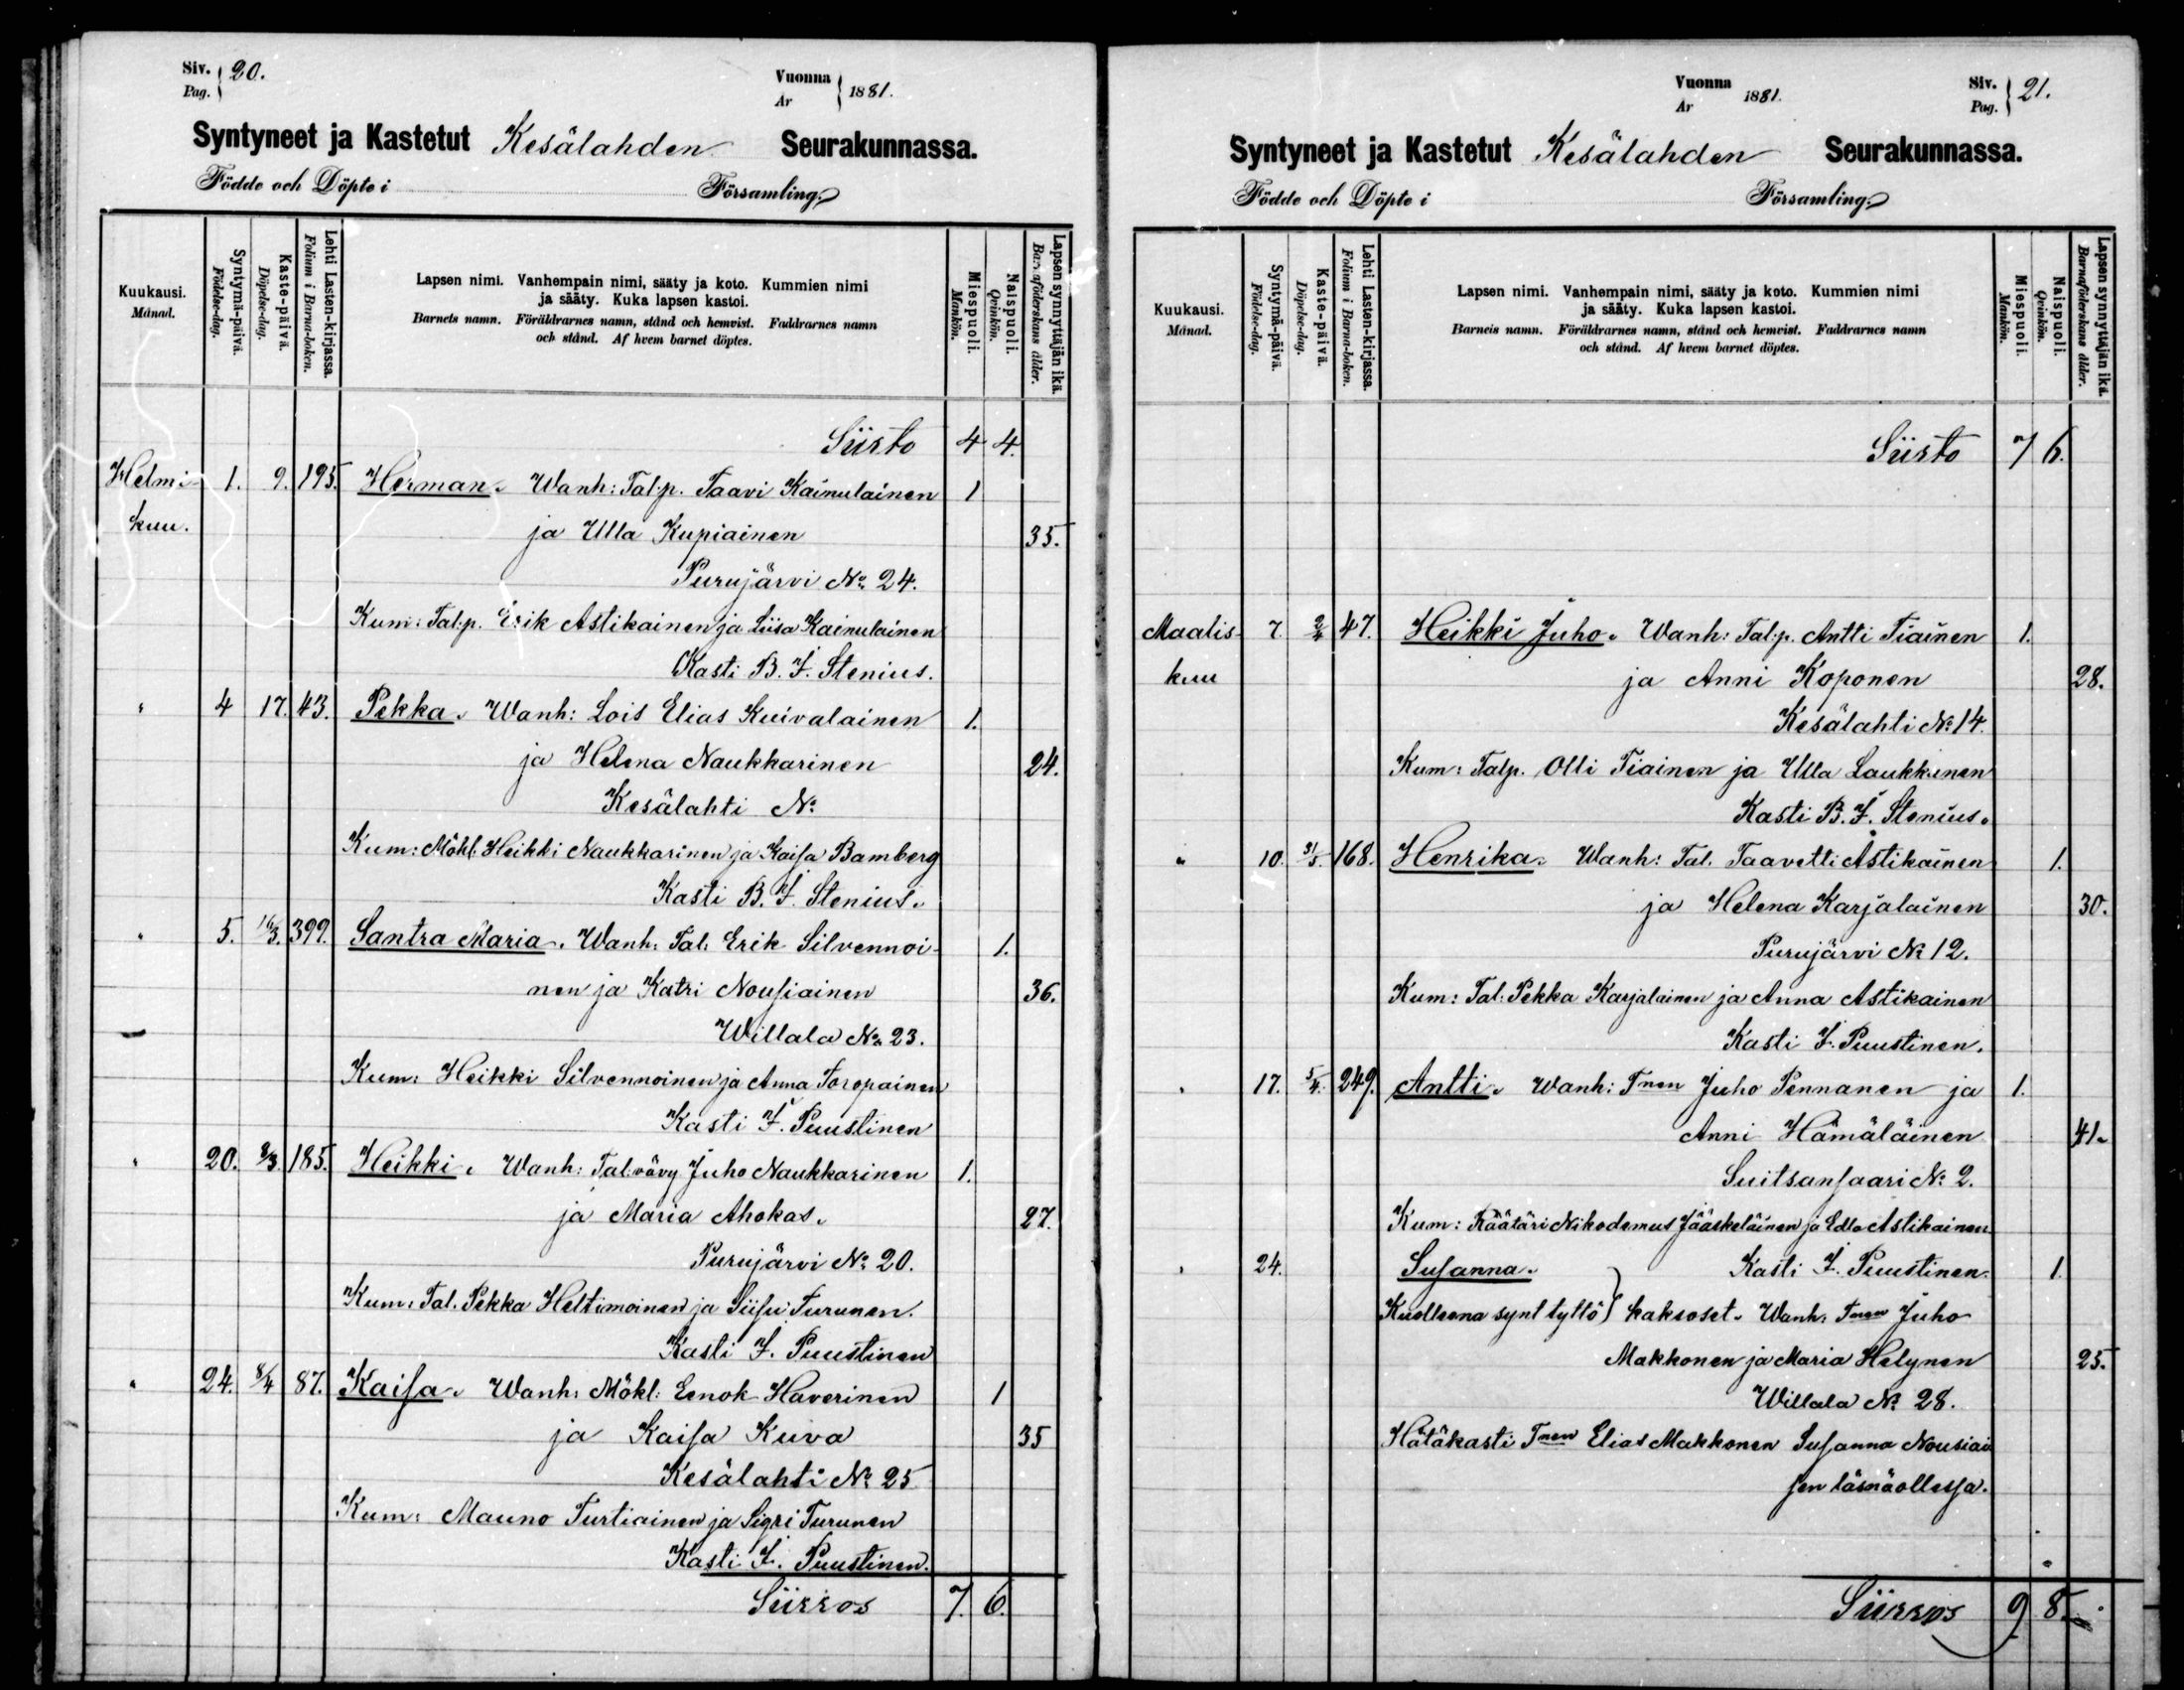 Siv. Pag. } 20.
Vuonna Ar } 1881.
Syntyneet ja Kastetut Kesälahden Seurakunnassa.
Födde och Döpte i Församling.
Kuukausi. Månad.
Syntymä-päivä. Födelse-dag.
Kaste-päivä. Döpelse-dag.
Lehti Lasten-kirjassa. Folium i Barna-boken.
Lapsen nimi. Vanhempain nimi, sääty ja koto. Kummien nimi
ja sääty. Kuka lapsen kastoi.
Barnets namn. Föräldrarnes namn, stånd och hemvist. Faddrarnes namn
och stånd. Af hvem barnet döptes.
Miespuoli. Mankön.
Naispuoli. Qvinkön.
Lapsen synnyttäjän ikä. Barnaföderskans ålder.
Siirto 4 4.
Helmi- 1. 9. 195. Herman. Wanh: Tal:p. Taavi Kainulainen 1
kuu. ja Ulla Kupiainen 35.
Purujärvi No 24.
Kum: Tal:p. Erik Astikainen ja Liisa Kainulainen
Kasti B. F. Stenius.
" 4 17. 43. Pekka. Wanh: Lois Elias Kuivalainen 1.
ja Helena Naukkarinen 24.
Kesälahti No
Kum: Mökl. Heikki Naukkarinen ja Kaisa Bamberg
Kasti B. F. Stenius.
" 5. 16/3. 399. Santra Maria. Wanh: Tal. Erik Silvennoi- 1.
nen ja Katri Nousiainen 36.
Willala No 23.
Kum: Heikki Silvennoinen ja Anna Toropainen
Kasti F. Puustinen
" 20. 3/3. 185. Heikki. Wanh: Tal:vävy Juho Naukkarinen 1.
ja Maria Ahokas. 27.
Purujärvi No 20.
Kum: Tal. Pekka Heltimoinen ja Turunen.
Kasti F. Puustinen
" 24. 8/4 87. Kaisa. Wanh: Mökl: Eenok Haverinen 1
ja Kaisa Kuva 35
Kesälahti No 25
Kum: Mauno Turtiainen ja Sigri Turunen
Kasti F. Puustinen.
Siirros 7. 6.
Vuonna Ar 1881.
Siv. Pag. } 21.
Syntyneet ja Kastetut Kesälahden Seurakunnassa.
Födde och Döpte i Församling.
Kuukausi. Månad.
Syntymä-päivä. Födelse-dag.
Kaste-päivä. Döpelse-dag.
Lehti Lasten-kirjassa. Folium i Barna-boken.
Lapsen nimi. Vanhempain nimi, sääty ja koto. Kummien nimi
ja sääty. Kuka lapsen kastoi.
Barnets namn. Föräldrarnes namn, stånd och hemvist. Faddrarnes namn
och stånd. Af hvem barnet döptes.
Miespuoli. Mankön.
Naispuoli. Qvinkön.
Lapsen synnyttäjän ikä. Barnaföderskans ålder.
Siirto 7 6.
Maalis- 7. 2/4 47. Heikki Juho. Wanh: Tal:p. Antti Tiainen 1.
kuu ja Anni Koponen 28.
Kesälahti No 14.
Kum: Talp. Olli Tiainen ja Ulla Laukkanen
Kasti B. F. Stenius.
" 10. 31/5. 168. Henrika. Wanh: Tal. Taavetti Astikainen 1.
ja Helena Karjalainen 30.
Purujärvi No 12.
Kum: Tal: Pekka Karjalainen ja Anna Astikainen
Kasti F. Puustinen.
" 17. 5/4. 249. Antti. Wanh: Tnen Juho Pennanen ja 1.
Anni Hämäläinen 41.
Suitsansaari No 2.
Kum: Räätäri Nikodemus Jääskeläinen ja Edla Astikainen
" 24. Susanna. Kasti F. Puustinen. 1.
Kuolleena synt tyttö } kaksoset. Wanh: Tnen Juho
Makkonen ja Maria Helynen 25.
Willala No 28.
Hätäkasti Tnen Elias Makkonen Susanna Nousiai
sen läsnäollessa.
Siirros 9 8.